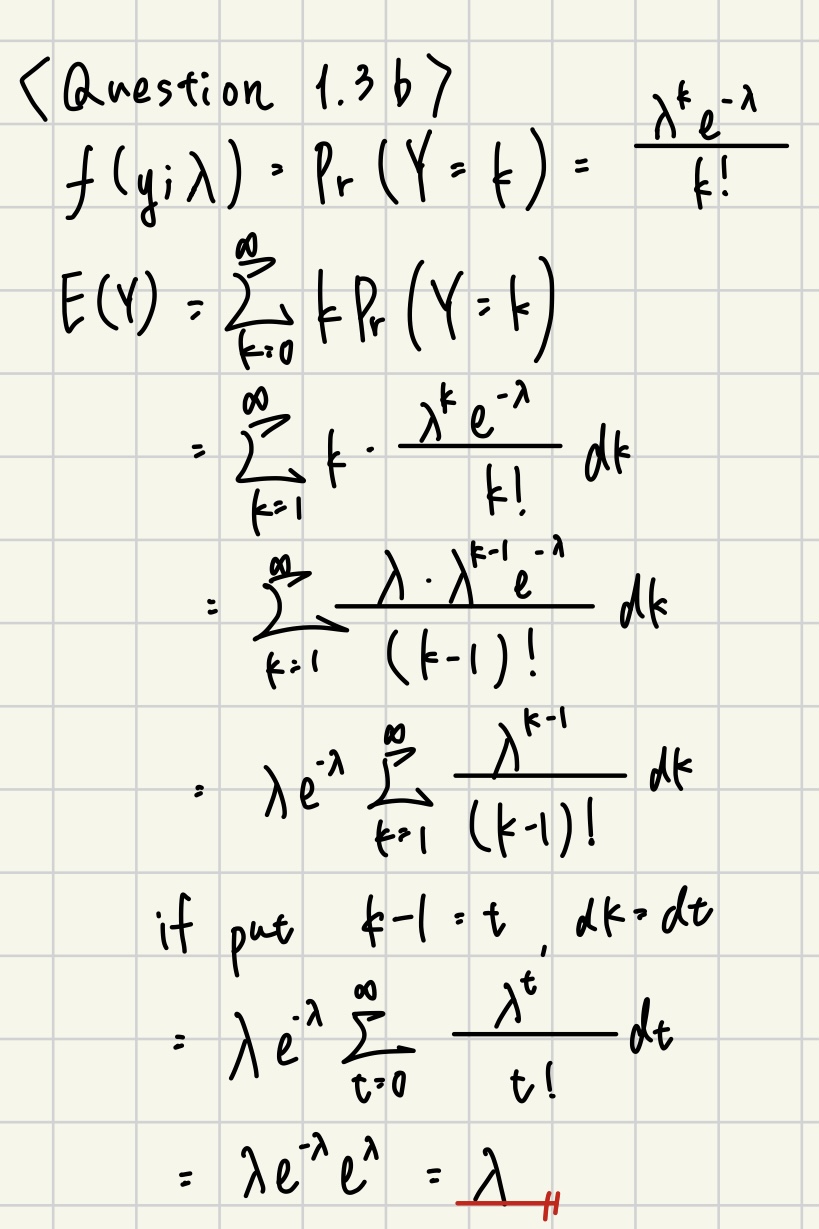 <Question 1.3 b>
f(y; λ) = Pr (Y = k) = λ^k e^{-λ} / k!
E(Y) = ∑_{k=0}^{∞} k Pr (Y = k)
= ∑_{k=1}^{∞} k · λ^k e^{-λ} / k! dk
= ∑_{k=1}^{∞} λ · λ^{k-1} e^{-λ} / (k-1)! dk
= λ e^{-λ} ∑_{k=1}^{∞} λ^{k-1} / (k-1)! dk
if put k-1 = t, dk = dt
= λ e^{-λ} ∑_{t=0}^{∞} λ^t / t! dt
= λ e^{-λ} e^{λ} = λ